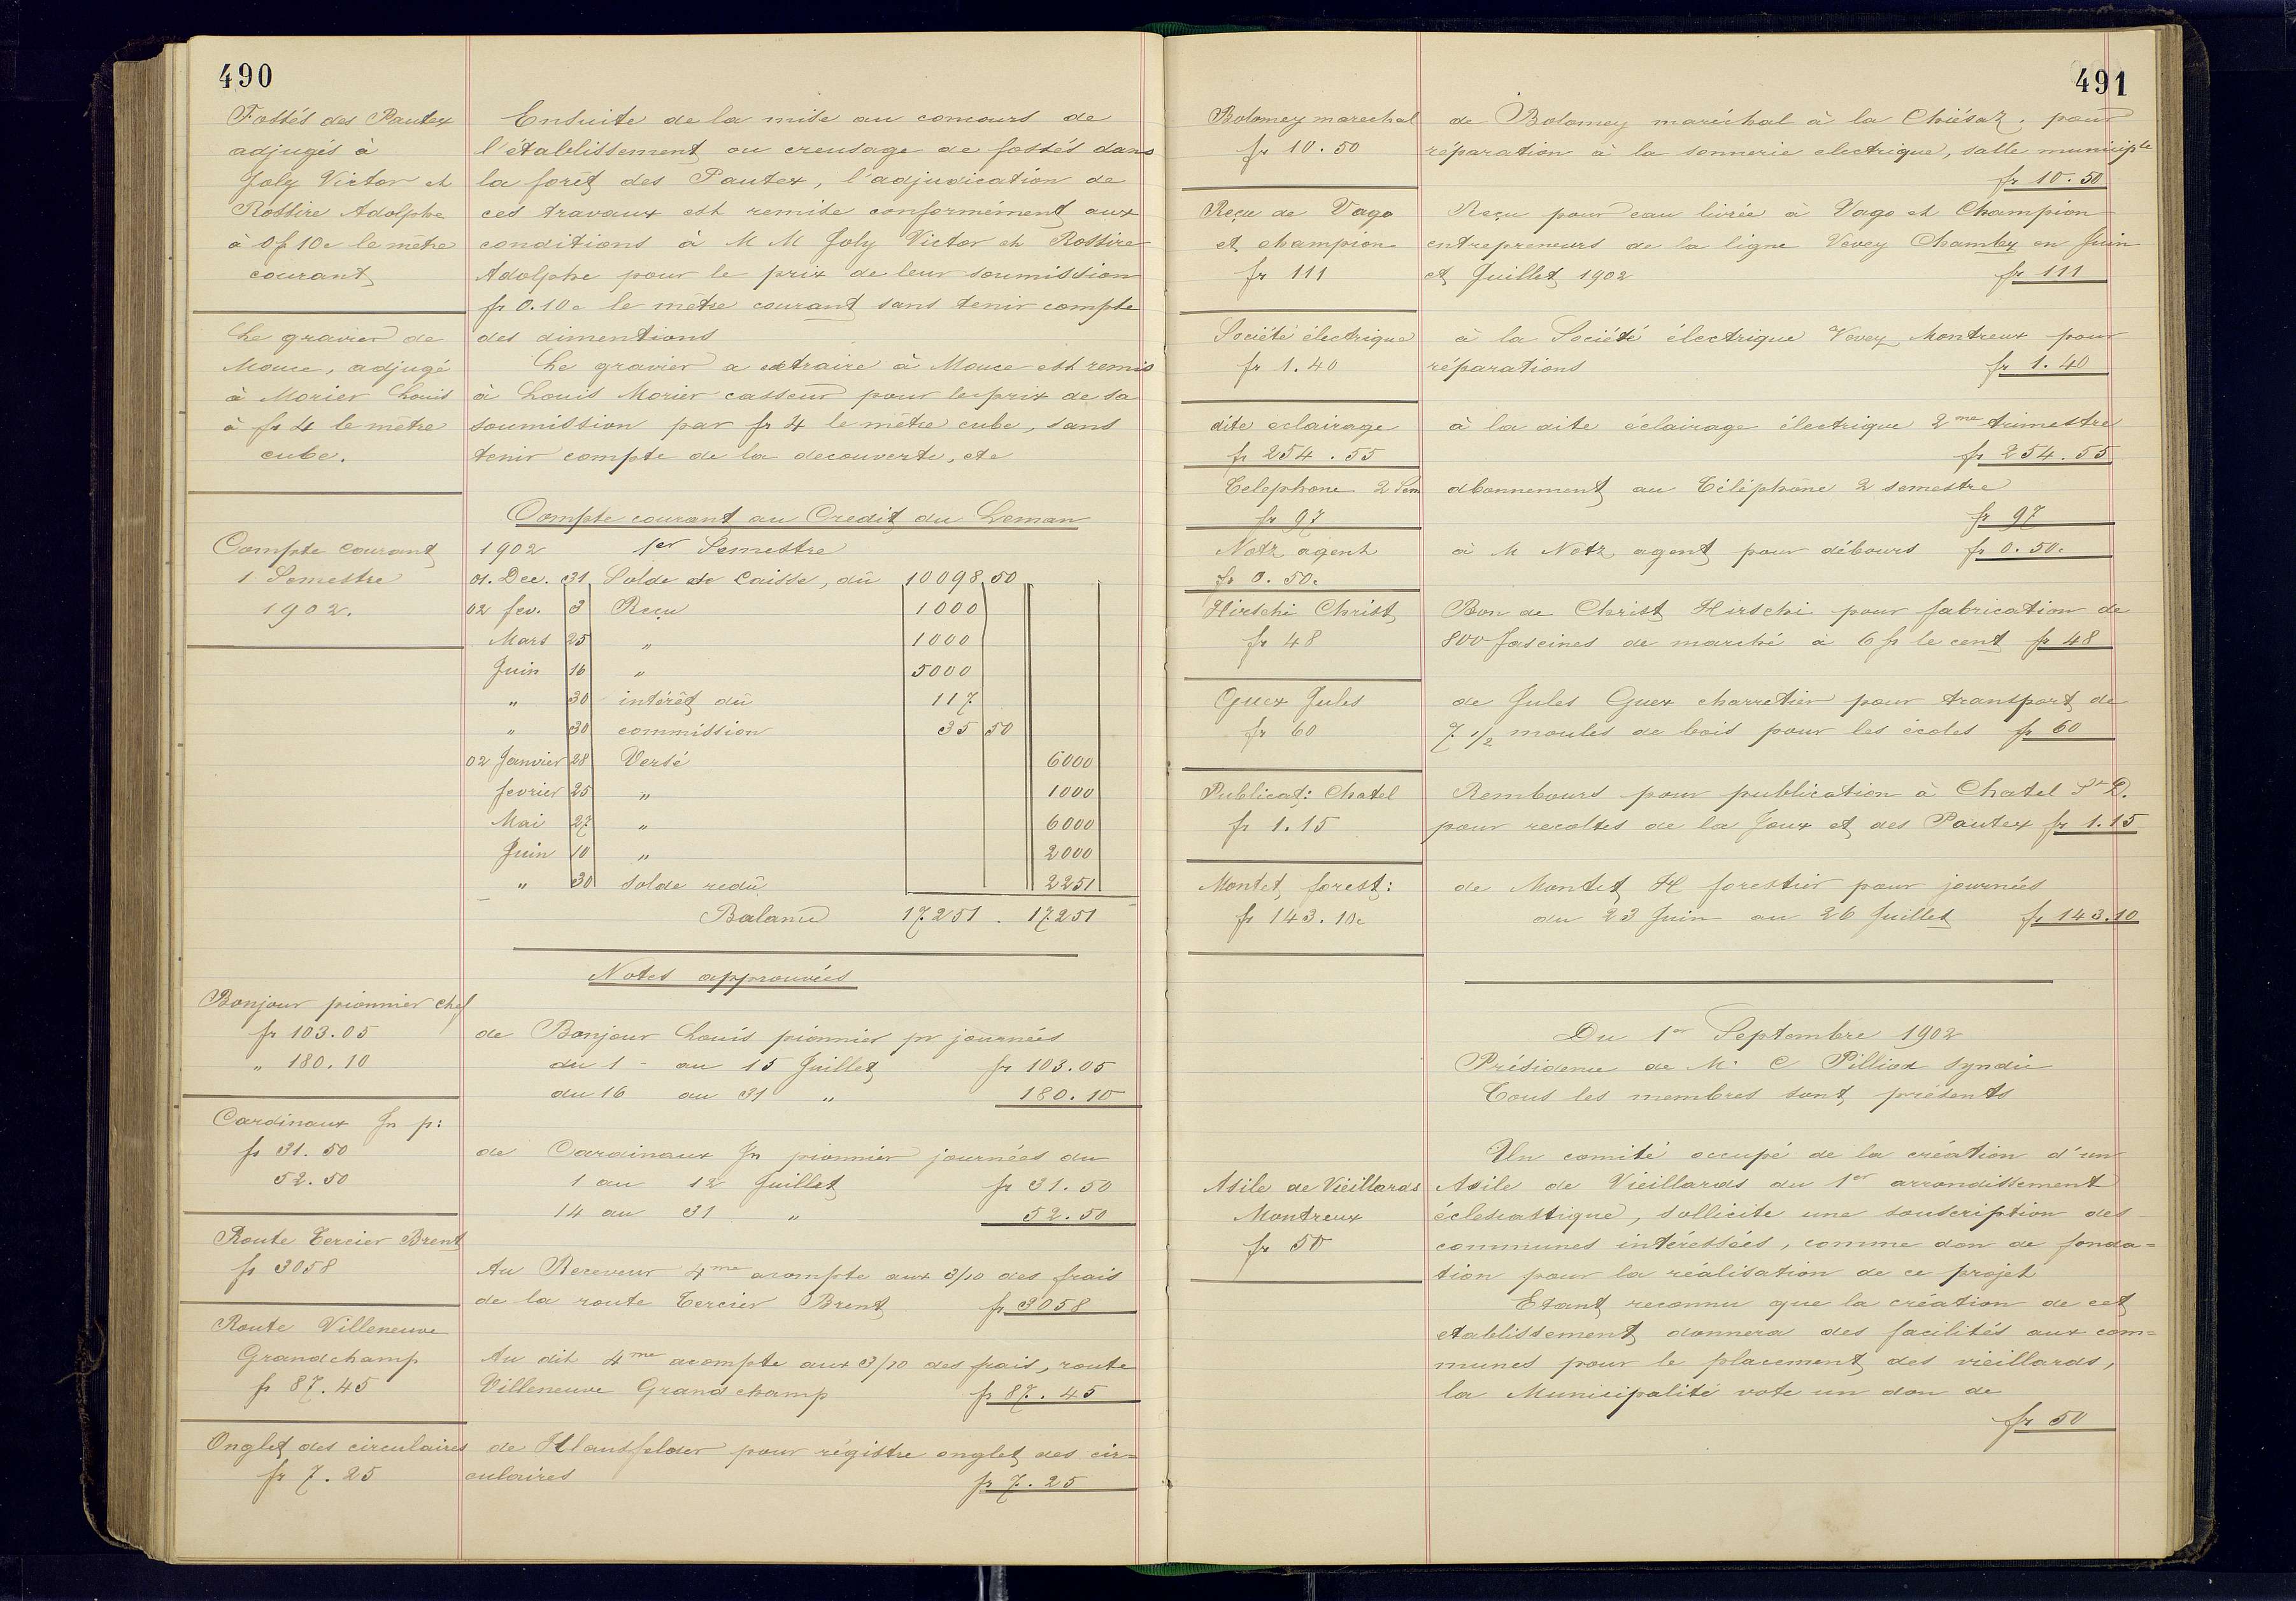 490
Fossés des Pautex
adjugés à
Joly Victor et
Rossire Adolphe
à 0 f 10c le mètre
courant
Ensuite de la mise au concours de
l'établissement ou creusage de fossés dans
la forêt des Pautex, l'adjudication de
ces travaux est remise conformément aux
conditions à M M Joly Victor et Rossire
Adolphe pour le prix de leur soumission
fr 0.10c le mètre courant sans tenir compte
des dimentions
Le gravier de
Mouce, adjugé
à Morier Louis
à fr 4 le mètre
cube.
Le gravier a extraire à Mouce est remis
à Louis Morier casseur pour le prix de sa
soumission par fr 4 le mètre cube, sans
tenir compte de la decouverte, etc
Compte courant au Credit du Leman
Compte Courant
1 Semestre
1902.
1902 1er Semestre
01. Dec. 31 Solde de Caisse, dû 10098 50
02 fev. 3 Reçu 1000
Mars 25 " 1000
Juin 16 " 5000
" 30 intérêt dû 117
" 30 commission 35 50
02 Janvier 28 Versé 6000
fevrier 25 " 1000
Mai 27 " 6000
Juin 10 " 2000
" 30 solde redû 2251
Balance 17251 . 17251
Notes approuvées
Bonjour pionnier chef
fr 103.05
" 180.10
de Bonjour Louis pionnier pr journées
du 1 - au 15 Juillet fr 103.05
du 16 au 31 " 180.10
Cardinaux Jn p:
fr 31.50
52.50
de Cardinaux Jn pionnier journées du
1 au 12 Juillet fr 31.50
14 au 31 " 52.50
Route Tercier Brent
fr 3058
Au Receveur 4me acompte aux 3/10 des frais
de la route Tercier Brent fr 3058
Route Villeneuve
Grandchamp
fr 87.45
Au dit 4me acompte aux 3/10 des frais, route
Villeneuve Grandchamp fr 87.45
Onglet des circulaires
fr 7.25
de Klausfelder pour régistre onglet des cir=
culaires fr 7.25
491
Bolomey marechal
fr 10.50
de Bolomey maréchal à la Chiésaz. pour
réparation à la sonnerie electrique, salle municiple
fr 10.50
Reçu de Vago
et champion
fr 111
Reçu pour eau livrée à Vago et Champion
entrepreneurs de la ligne Vevey Chamby en Juin
et Juillet 1902 fr 111
Société électrique
fr 1.40
à la Société électrique Vevey Montreux pour
réparations fr 1.40
dite éclairage
fr 254.55
à la dite éclairage électrique 2me trimestre
fr 254.55
Telephone 2 Sem
fr 97
abonnement au Téléphone 2 semestre
fr 97
Notz agent
fr 0.50c
à M Notz agent pour débours fr 0.50c
Hirschi Christ
fr 48
Bon de Christ Hirschi pour fabrication de
800 fascines de marché à 6 fr le cent fr 48
Guex Jules
fr 60
de Jules Guex charretier pour transport de
7 1/2 moules de bois pour les écoles fr 60
Publicat: Chatel
fr 1.15
Rembours pour publication à Chatel St D.
pour recoltes de la Joux et des Pautex fr 1.15
Montet, forest:
fr 143.10c
de Montet H forestier pour journées
du 23 Juin au 26 Juillet fr 143.10
Du 1er Septembre 1902
Présidence de M. C Pilliod syndic
Tous les membres sont présents
Asile de Vieillards
Montreux
fr 50
Un comité occupé de la création d'un
Asile de Vieillards du 1er arrondissement
éclesiastique, sollicite une souscription des
communes intéressées, comme don de fonda=
tion pour la réalisation de ce projet
Etant reconnu que la création de cet
etablissement donnera des facilités aux com=
munes pour le placement des vieillards,
la Municipalité vote un don de
fr 50